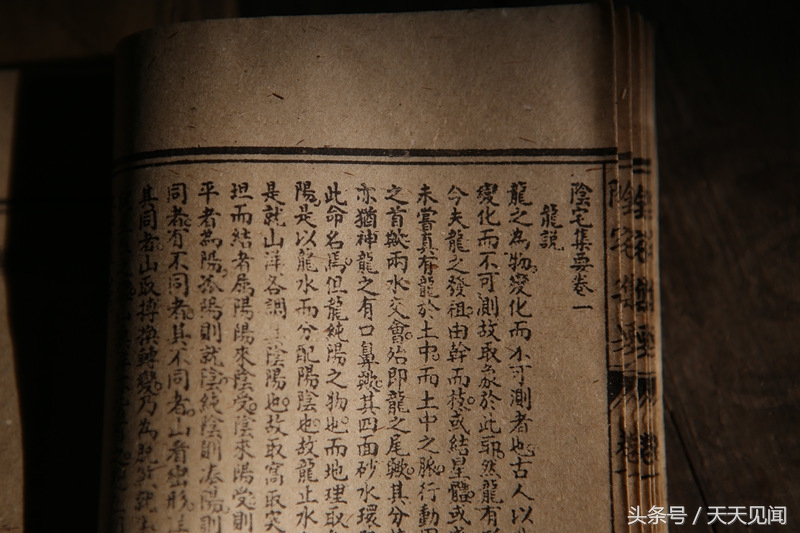 陰宅集要卷一
龍説
龍之為物變化而不可測者也古人以
變化而不可測故取象於此歟然龍有
今夫龍之發祖由幹而枝或結星體或
未嘗真有龍於土中而土中之脉行動
之首歟兩水交會殆即龍之尾歟其分
亦猶神龍之有口鼻歟其四面砂水環
此命名焉但龍純陽之物也而地理取
陽是以龍水而分配陽陰也故龍止水
是就山洋各調 陰陽也故取窩取突
坦而結者屬陽陽來陰受陰來陽受則
平者為陽孤陽則就陰純陰則湊陽則
同者有不同者其不同者山者出形
其同者山取摶換轉變乃為
陰宅集要 卷一
头条号 / 天天见闻